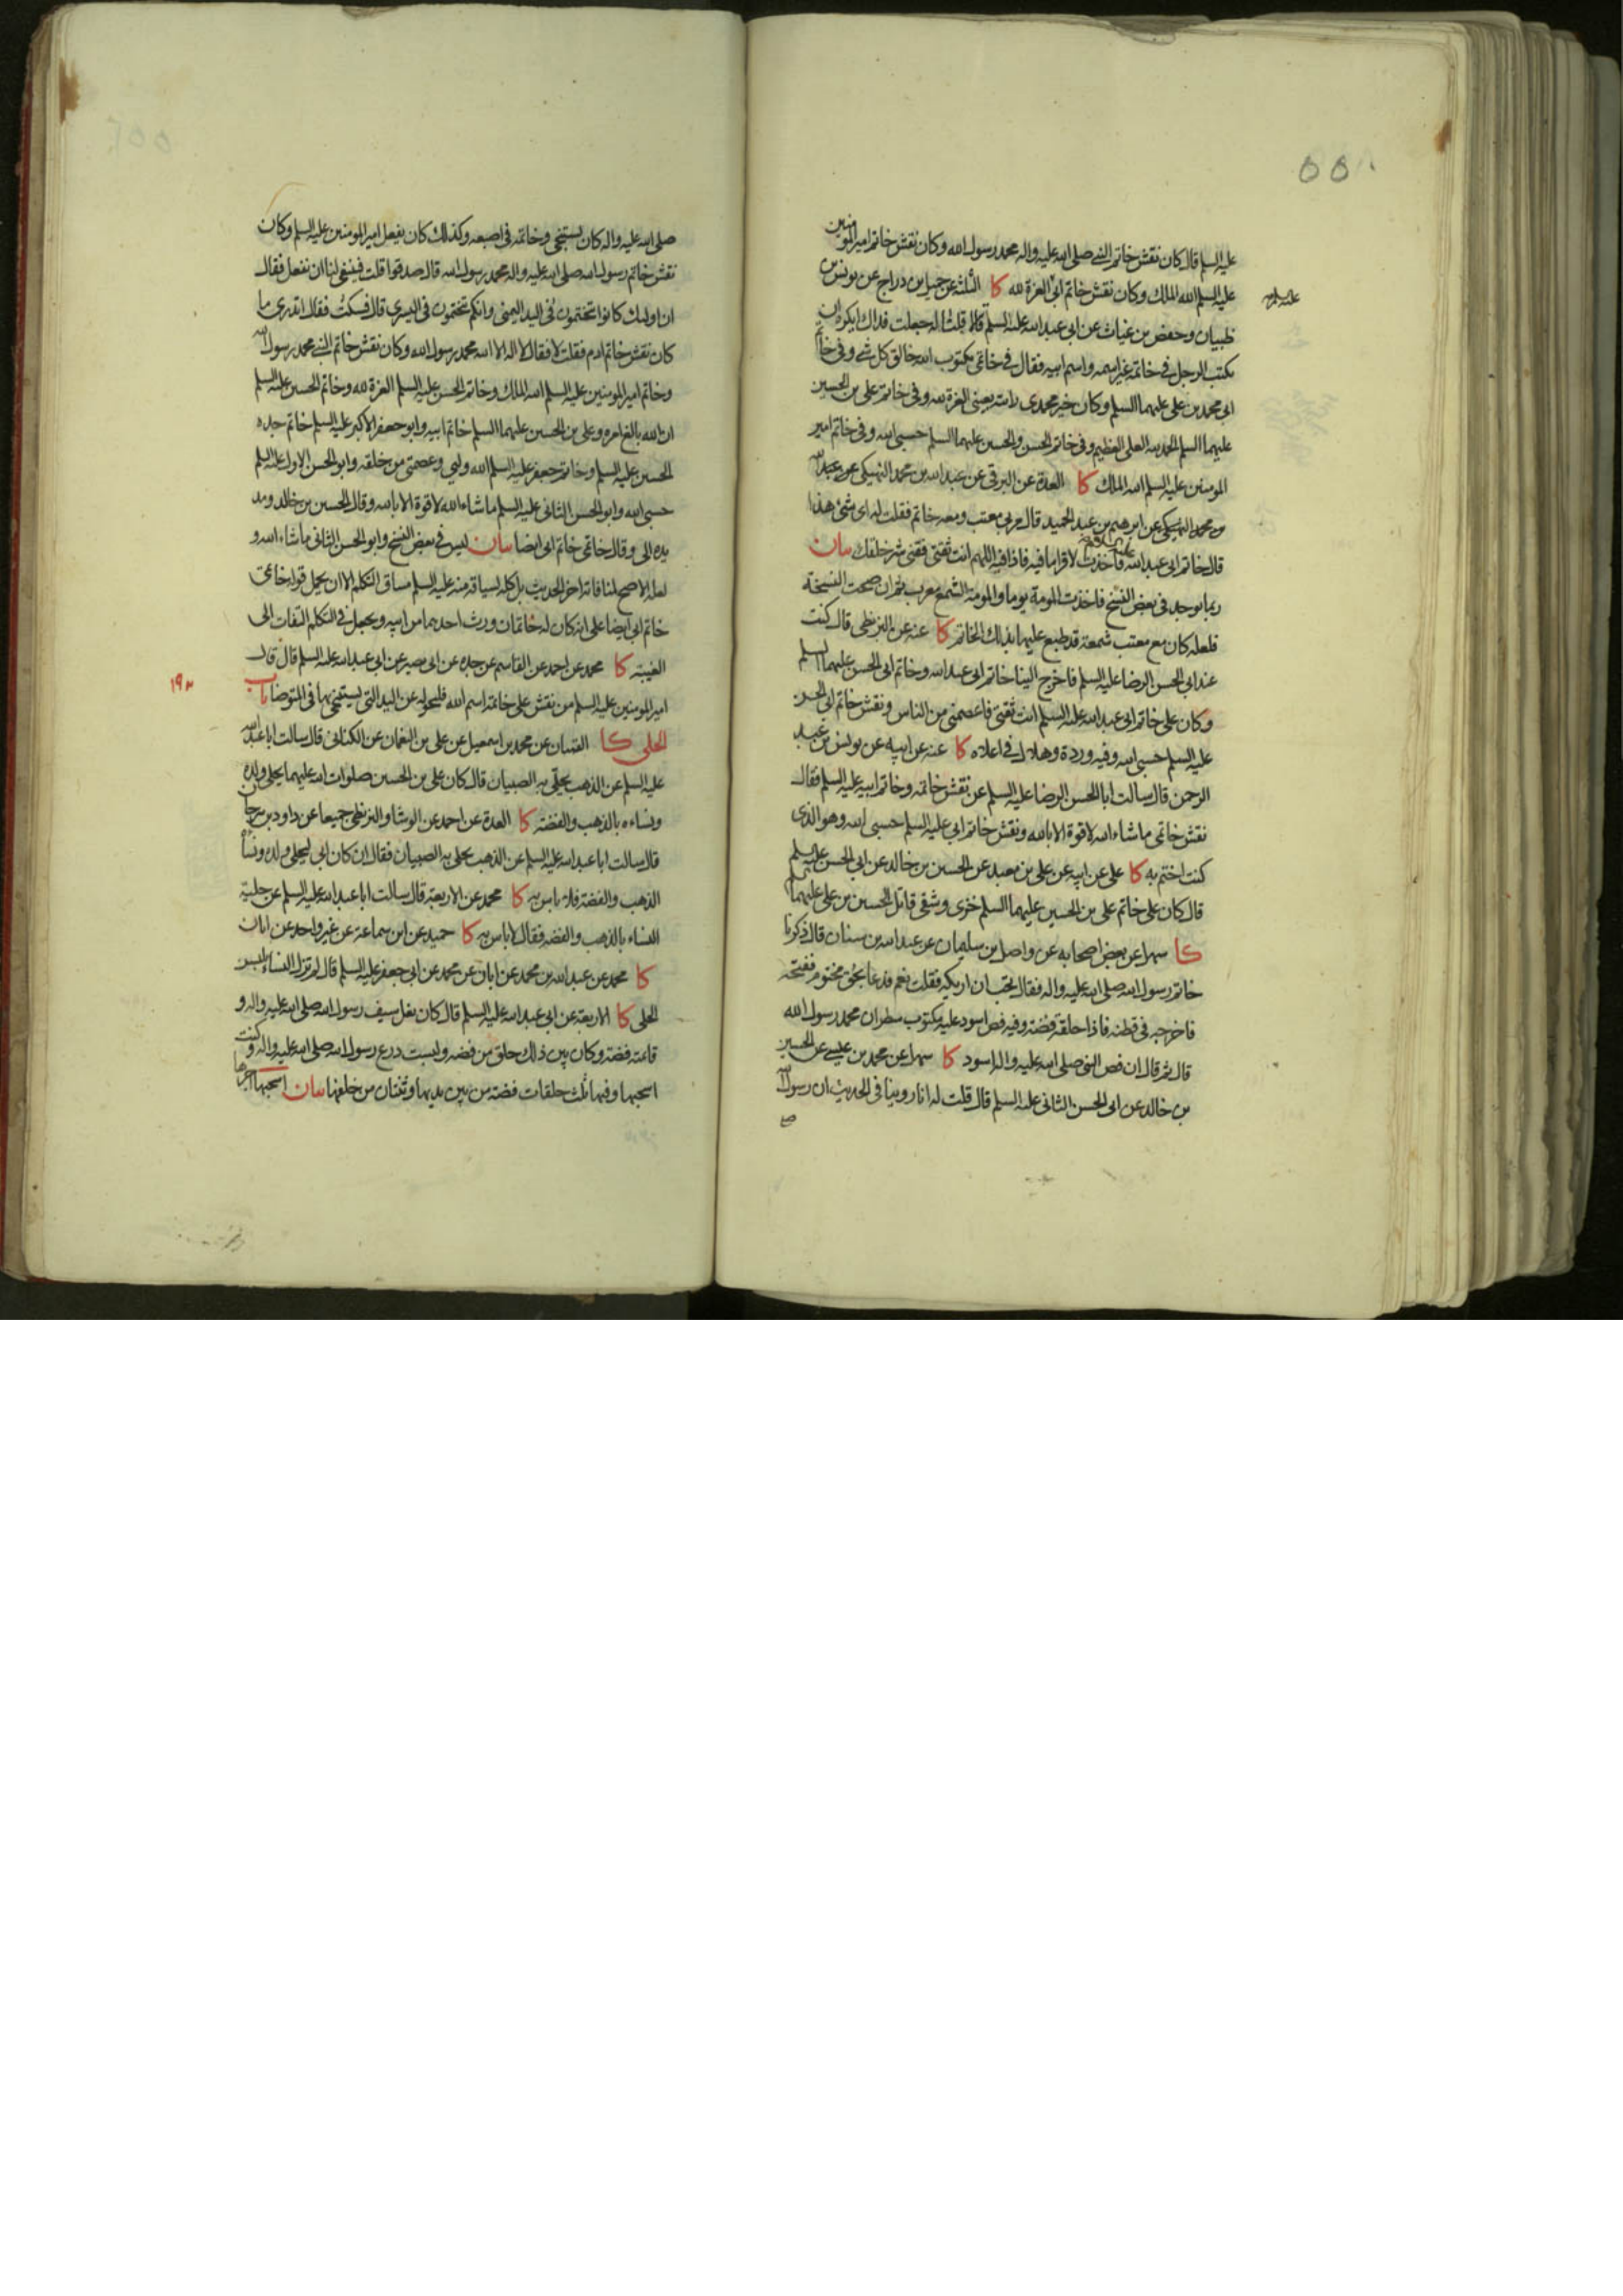 عليه السلم قال كان نقش خاتم النبي صلى الله عليه واله محمد رسول الله وكان نقش خاتم امير المومنين
عليه السلم الله الملك وكان نقش خاتم ابي العزة لله كا الثلثة عن جميل بن دراج عن يونس بن
عليه السلم
ظبيان وحفص بن غياث عن ابي عبد الله عليه السلم قالا قلنا له جعلت فداك ايكره ان
يكتب الرجل في خاتمه غير اسمه واسم ابيه فقال في خاتمي مكتوب الله خالق كل شي وفي خاتم
ابي محمد بن علي عليهما السلم وكان خير محمدي رايته بعيني العزة لله وفي خاتم علي بن الحسين
عليهما السلم الحمد لله العلي العظيم وفي خاتم الحسن والحسين عليهما السلم حسبي الله وفي خاتم امير
المومنين عليه السلم الله الملك كا العدة عن البرقي عن عبد الله بن محمد النهيكي عن
محمد النهيكي عن ابرهيم بن عبد الحميد قال مر بي معتب ومعه خاتم فقلت له اي شئ هذا
قال خاتم ابي عبد الله عليه السلم فاخذت لاقرا ما فيه فاذا فيه اللهم انت ثقتي فقني شر خلقك بيان
ربما يوجد في بعض النسخ فاخذت المومة يوما والمومة الشمع معرب ثم ان صحت النسخة
فلعله كان مع معتب شمعة قد طبع عليها بذلك الخاتم كا عنه عن البزنطي قال كنت
عند ابي الحسن الرضا عليه السلم فاخرج الينا خاتم ابي عبد الله وخاتم ابي الحسن عليهما السلم
وكان على خاتم ابي عبد الله عليه السلم انت ثقتي فاعصمني من الناس ونقش خاتم ابي الحسن
عليه السلم حسبي الله وفيه وردة وهلال في اعلاه كا عنه عن ابيه عن يونس بن عبد
الرحمن قال سالت ابا الحسن الرضا عليه السلم عن نقش خاتمه وخاتم ابيه عليه السلم فقال
نقش خاتمي ما شاء الله لا قوة الا بالله ونقش خاتم ابي عليه السلم حسبي الله وهو الذي
كنت اختم به كا علي عن ابيه عن علي بن معبد عن الحسين بن خالد عن ابي الحسن عليه السلم
قال كان على خاتم علي بن الحسين عليهما السلم خزي وشقي قاتل الحسين بن علي عليهما السلم
كا سهل عن بعض اصحابه عن واصل بن سليمان عن عبد الله بن سنان قال ذكرنا
خاتم رسول الله صلى الله عليه واله فقال تحب ان اريكه فقلت نعم فدعا بحق مختوم ففتحه
فاخرجه في قطنه فاذا حلقة فضة وفيه فص اسود عليه مكتوب سطران محمد رسول الله
قال ثم قال ان فص النبي صلى الله عليه واله اسود كا سهل عن محمد بن عيسى عن الحسين
بن خالد عن ابي الحسن الثاني عليه السلم قال قلت له انا روينا في الحديث ان رسول الله
صلى الله عليه واله كان يستنجي وخاتمه في اصبعه وكذلك كان يفعل امير المومنين عليه السلم وكان
نقش خاتم رسول الله صلى الله عليه واله محمد رسول الله قال صدقوا قلت فينبغي لنا ان نفعل فقال
ان اولئك كانوا يتختمون في اليد اليمنى وانكم تتختمون في اليسرى قال فسكت فقال اتدري ما
كان نقش خاتم ادم فقلت لا فقال لا اله الا الله محمد رسول الله وكان نقش خاتم النبي محمد رسول الله
وخاتم امير المومنين عليه السلم الله الملك وخاتم الحسن عليه السلم العزة لله وخاتم الحسين عليه السلم
ان الله بالغ امره وعلي بن الحسين عليهما السلم خاتم ابيه وابو جعفر الاكبر عليه السلم خاتم جده
الحسين عليه السلم وخاتم جعفر عليه السلم الله وليي وعصمتي من خلقه وابو الحسن الاول عليه السلم
حسبي الله وابو الحسن الثاني عليه السلم ما شاء الله لا قوة الا بالله وقال الحسين بن خالد ومد
يده الي وقال خاتمي خاتم ابي ايضا بيان ليس في بعض النسخ وابو الحسن الثاني ما شاء الله و
لعله الاصح لمنافاته اخر الحديث بل كله لسياقه منه عليه السلم مساق التكلم الا ان يحمل قوله خاتمي
خاتم ابي ايضا على انه كان له خاتمان ورث احدهما من ابيه ويجعل في التكلم التفات الى
الغيبة كا محمد عن احمد عن القاسم عن جده عن ابي بصير عن ابي عبد الله عليه السلم قال قال
امير المومنين عليه السلم من نقش على خاتمه اسم الله فليحوله عن اليد التي يستنجي بها في المتوضا باب
١٩٣
الحلي كا القميان عن محمد بن اسمعيل عن علي بن النعمان عن الكناني قال سالت ابا عبد الله
عليه السلم عن الذهب يحلى به الصبيان قال كان علي بن الحسين صلوات الله عليهما يحلي ولده
ونساءه بالذهب والفضة كا العدة عن احمد عن الوشا والبزنطي جميعا عن داود بن سرحان
قال سالت ابا عبد الله عليه السلم عن الذهب يحلى به الصبيان فقال ان كان ابي ليحلي ولده ونساءه
الذهب والفضة فلا باس به كا محمد عن الاربعة قال سالت ابا عبد الله عليه السلم عن حلية
النساء بالذهب والفضه فقال لا باس به كا حميد عن ابن سماعة عن غير واحد عن ابان
كا محمد عن عبد الله بن محمد عن ابان عن محمد عن ابي جعفر عليه السلم قال لم تزل النساء تلبس
الحلي كا الاربعة عن ابي عبد الله عليه السلم قال كان نعل سيف رسول الله صلى الله عليه واله و
قائمته فضة وكان بين ذلك حلق من فضه ولبست درع رسول الله صلى الله عليه واله وكنت
اسحبها وفيها ثلث حلقات فضة من بين يديها وثنتان من خلفها بيان اسحبها اجرها